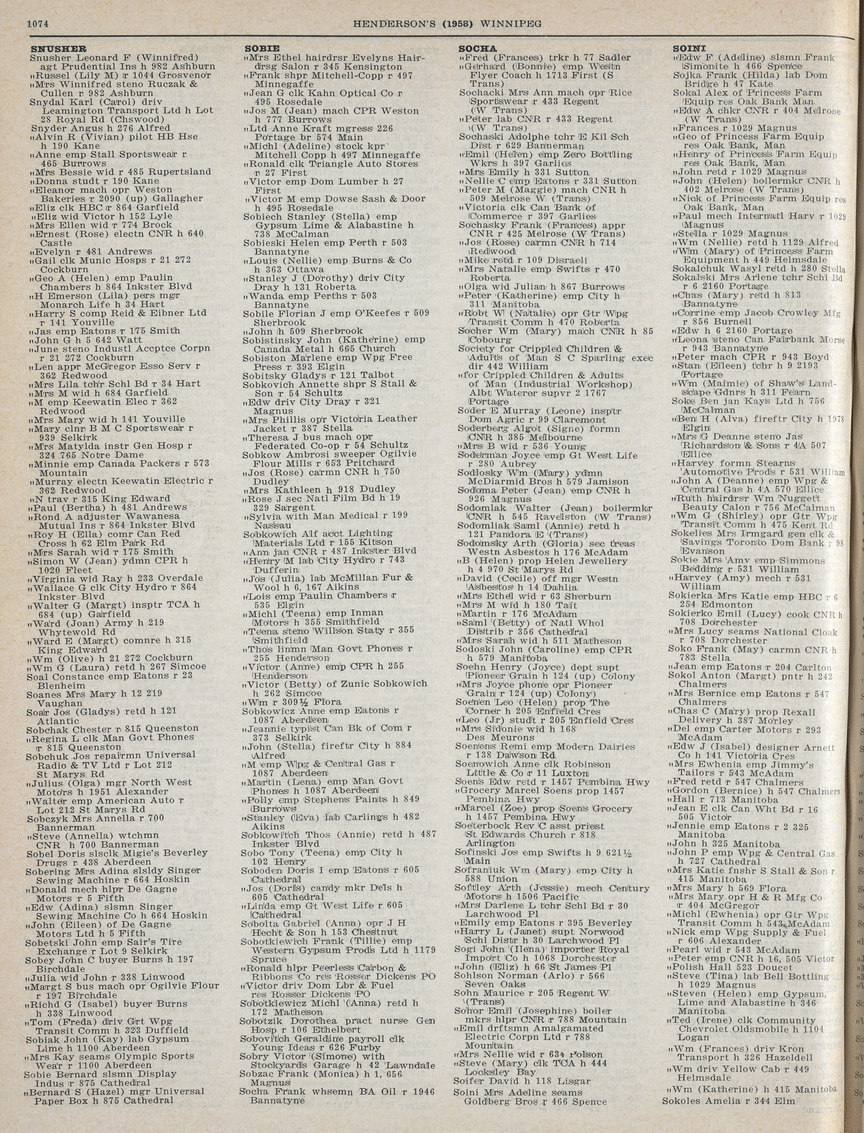 1074
HENDERSON'S (1958) WINNIPEG
SNUSHER
Snusher Leonard F (Winnifred)
agt Prudential Ins h 982 Ashburn
„Russel (Lily M) r 1044 Grosvenor
„Mrs Winnifred steno Ruczak &
Cullen r 982 Ashburn
Snydal Karl (Carol) driv
Leamington Transport Ltd h Lot
28 Royal Rd (Chswood)
Snyder Angus h 276 Alfred
„Alvin R (Vivian) pilot HB Hse
h 190 Kane
„Anne emp Stall Sportswear r
465 Burrows
„Mrs Bessie wid r 485 Rupertsland
„Donna studt r 190 Kane
„Eleanor mach opr Weston
Bakeries r 2090 (up) Gallagher
„Eliz clk HBC r 864 Garfield
„Eliz wid Victor h 152 Lyle
„Mrs Ellen wid r 774 Brock
„Ernest (Rose) electn CNR h 640
Castle
„Evelyn r 481 Andrews
„Gail clk Munic Hosps r 21 272
Cockburn
„Geo A (Helen) emp Paulin
Chambers h 864 Inkster Blvd
„H Emerson (Lila) pers mgr
Monarch Life h 34 Hart
„Harry S comp Reid & Eibner Ltd
r 141 Youville
„Jas emp Eatons r 175 Smith
„John G h 5 642 Watt
„June steno Industl Accptce Corpn
r 21 272 Cockburn
„Len appr McGregor Esso Serv r
362 Redwood
„Mrs Lila tchr Schl Bd r 34 Hart
„Mrs M wid h 684 Garfield
„M emp Keewatin Elec r 362
Redwood
„Mrs Mary wid h 141 Youville
„Mary clnr B M C Sportswear r
939 Selkirk
„Mrs Matylda instr Gen Hosp r
324 765 Notre Dame
„Minnie emp Canada Packers r 573
Mountain
„Murray electn Keewatin Electric r
362 Redwood
„N trav r 315 King Edward
„Paul (Bertha) h 481 Andrews
„Rond A adjuster Wawanesa
Mutual Ins r 864 Inkster Blvd
„Roy H (Ella) comr Can Red
Cross h 62 Elm Park Rd
„Mrs Sarah wid r 175 Smith
„Simon W (Jean) ydmn CPR h
1029 Fleet
„Virginia wid Ray h 233 Overdale
„Wallace G clk City Hydro r 864
Inkster Blvd
„Walter G (Margt) insptr TCA h
684 (up) Garfield
„Ward (Joan) Army h 219
Whytewold Rd
„Ward E (Margt) comnre h 315
King Edward
„Wm (Olive) h 21 272 Cockburn
„Wm G (Laura) retd h 267 Simcoe
Soal Constance emp Eatons r 23
Blenheim
Soanes Mrs Mary h 12 219
Vaughan
Soar Jos (Gladys) retd h 121
Atlantic
Sobchak Chester r 815 Queenston
„Regina L clk Man Govt Phones
r 815 Queenston
Sobchuk Jos repairmn Universal
Radio & TV Ltd r Lot 212
St Marys Rd
„Julius (Olga) mgr North West
Motors h 1951 Alexander
„Walter emp American Auto r
Lot 212 St Marys Rd
Sobczyk Mrs Annella r 700
Bannerman
„Steve (Annella) wtchmn
CNR h 700 Bannerman
Sobel Doris slsclk Migie's Beverley
Drugs r 438 Aberdeen
Sobering Mrs Adina slsldy Singer
Sewing Machine r 664 Hoskin
„Donald mech hlpr De Gagne
Motors r 5 Fifth
„Edw (Adina) slsmn Singer
Sewing Machine Co h 664 Hoskin
„John (Eileen) of De Gagne
Motors Ltd h 5 Fifth
Sobetski John emp Sair's Tire
Exchange r Lot 9 Selkirk
Sobey John C buyer Burns h 197
Birchdale
„Julia wid John r 338 Linwood
„Margt S bus mach opr Ogilvie Flour
r 197 Birchdale
„Richd G (Isabel) buyer Burns
h 338 Linwood
„Tom (Freda) driv Grt Wpg
Transit Comm h 323 Duffield
Sobiak John (Kay) lab Gypsum
Lime h 1100 Aberdeen
„Mrs Kay seams Olympic Sports
Wear r 1100 Aberdeen
Sobie Bernard slsmn Display
Indus r 875 Cathedral
„Bernard S (Hazel) mgr Universal
Paper Box h 875 Cathedral
SOBIE
„Mrs Ethel hairdrsr Evelyns Hair-
drsg Salon r 345 Kensington
„Frank shpr Mitchell-Copp r 497
Minnegaffe
„Jean G clk Kahn Optical Co r
495 Rosedale
„Jos M (Jean) mach CPR Weston
h 777 Burrows
„Ltd Anne Kraft mgress 226
Portage br 574 Main
„Michl (Adeline) stock kpr
Mitchell Copp h 497 Minnegaffe
„Ronald clk Triangle Auto Stores
r 27 First
„Victor emp Dom Lumber h 27
First
„Victor M emp Dowse Sash & Door
h 495 Rosedale
Sobiech Stanley (Stella) emp
Gypsum Lime & Alabastine h
738 McCalman
Sobieski Helen emp Perth r 503
Bannatyne
„Louis (Nellie) emp Burns & Co
h 363 Ottawa
„Stanley J (Dorothy) driv City
Dray h 131 Roberta
„Wanda emp Perths r 503
Bannatyne
Sobile Florian J emp O'Keefes r 509
Sherbrook
„John h 509 Sherbrook
Sobistinsky John (Katherine) emp
Canada Metal h 665 Church
Sobiston Marlene emp Wpg Free
Press r 393 Elgin
Sobitsky Gladys r 121 Talbot
Sobkovich Annette shpr S Stall &
Son r 54 Schultz
„Edw driv City Dray r 321
Magnus
„Mrs Phillis opr Victoria Leather
Jacket r 387 Stella
„Theresa J bus mach opr
Federated Co-op r 54 Schultz
Sobkow Ambrosi sweeper Ogilvie
Flour Mills r 653 Pritchard
„Jos (Rose) carmn CNR h 750
Dudley
„Mrs Kathleen h 918 Dudley
„Rose J sec Natl Film Bd h 19
329 Sargent
„Sylvia with Man Medical r 199
Nassau
Sobkowich Alf acct Lighting
Materials Ltd r 155 Kitson
„Ann jan CNR r 487 Inkster Blvd
„Henry M lab City Hydro r 743
Dufferin
„Jos (Julia) lab McMillan Fur &
Wool h 6, 167 Aikins
„Lois emp Paulin Chambers r
535 Elgin
„Michl (Teena) emp Inman
Motors h 355 Smithfield
„Teena steno Willson Staty r 355
Smithfield
„Thos linmn Man Govt Phones r
255 Henderson
„Victor (Anne) emp CPR h 255
Henderson
„Victor (Betty) of Zunic Sobkowich
h 262 Simcoe
„Wm r 309½ Flora
Sobkowicz Anne emp Eatons r
1087 Aberdeen
„Jeannie typist Can Bk of Com r
373 Selkirk
„John (Stella) fireftr City h 884
Alfred
„M emp Wpg & Central Gas r
1087 Aberdeen
„Martin (Lena) emp Man Govt
Phones h 1087 Aberdeen
„Polly emp Stephens Paints h 849
Burrows
„Stanley (Eva) lab Carlings h 482
Aikins
Sobkowitch Thos (Annie) retd h 487
Inkster Blvd
Sobo Tony (Teena) emp City h
102 Henry
Soboden Doris I emp Eatons r 605
Cathedral
„Jos (Doris) candy mkr Dels h
605 Cathedral
„Linda emp Gt West Life r 605
Cathedral
Sobolta Gabriel (Anna) opr J H
Hecht & Son h 153 Chestnut
Sobotkiewich Frank (Tillie) emp
Western Gypsum Prods Ltd h 1179
Spruce
„Ronald hlpr Peerless Carbon &
Ribbons Co res Rosser Dickens PO
„Victor driv Dom Lbr & Fuel
res Rosser Dickens PO
Sobotkiewicz Michl (Anna) retd h
172 Matheson
Sobotzik Dorothea pract nurse Gen
Hosp r 106 Ethelbert
Sobovitch Geraldine payroll clk
Young Ideas r 626 Furby
Sobry Victor (Simone) with
Stockyards Garage h 42 Lawndale
Sobzac Frank (Monica) h 1, 656
Magnus
Socha Frank whsemn BA Oil r 1946
Bannatyne
SOCHA
„Fred (Frances) trkr h 77 Sadler
„Gerhard (Bonnie) emp Westn
Flyer Coach h 1713 First (S
Trans)
Sochacki Mrs Ann mach opr Rice
Sportswear r 433 Regent
(W Trans)
„Peter lab CNR r 433 Regent
(W Trans)
Sochaski Adolphe tchr E Kil Sch
Dist r 629 Bannerman
„Emil (Helen) emp Zero Bottling
Wkrs h 397 Garlies
„Mrs Emily h 331 Sutton
„Nellie C emp Eatons r 331 Sutton
„Peter M (Maggie) mach CNR h
509 Melrose W (Trans)
„Victoria clk Can Bank of
Commerce r 397 Garlies
Sochasky Frank (Frances) appr
CNR r 425 Melrose (W Trans)
„Jos (Rose) carmn CNR h 714
Redwood
„Mike retd r 109 Disraeli
„Mrs Natalie emp Swifts r 470
Roberta
„Olga wid Julian h 867 Burrows
„Peter (Katherine) emp City h
311 Manitoba
„Robt W (Natalie) opr Gtr Wpg
Transit Comm h 470 Roberta
Socher Wm (Mary) mach CNR h 85
Cobourg
Society for Crippled Children &
Adults of Man S C Sparling exec
dir 442 William
„for Crippled Children & Adults
of Man (Industrial Workshop)
Albt Waterer supvr 2 1767
Portage
Soder E Murray (Leone) insptr
Dom Agric r 99 Claremont
Soderberg Algot (Signe) formn
CNR h 385 Melbourne
„Mrs B wid r 536 Young
Soderman Joyce emp Gt West Life
r 280 Aubrey
Sodlosky Wm (Mary) ydmn
McDiarmid Bros h 579 Jamison
Sodoma Peter (Jean) emp CNR h
926 Magnus
Sodomlak Walter (Jean) boilermkr
CNR h 545 Ravelston (W Trans)
Sodomliak Saml (Annie) retd h
121 Pandora E (Trans)
Sodomsky Arth (Gloria) sec treas
Westn Asbestos h 176 McAdam
„B (Helen) prop Helen Jewellery
h 4 970 St Marys Rd
„David (Cecile) off mgr Westn
Asbestos h 14 Dahlia
„Mrs Ethel wid r 63 Sherburn
„Mrs M wid h 180 Tait
„Martin r 176 McAdam
„Saml (Betty) of Natl Whol
Distrib r 356 Cathedral
„Mrs Sarah wid h 511 Matheson
Sodoski John (Caroline) emp CPR
h 579 Manitoba
Soehn Henry (Joyce) dept supt
Pioneer Grain h 124 (up) Colony
„Mrs Joyce phone opr Pioneer
Grain r 124 (up) Colony)
Soenen Leo (Helen) prop The
Corner h 205 Enfield Cres
„Leo (Jr) studt r 205 Enfield Cres
„Mrs Sidonie wid h 168
Des Meurons
Soenens Remi emp Modern Dairies
r 138 Dawson Rd
Soenowich Anne clk Robinson
Little & Co r 11 Luxton
Soens Edw retd r 1457 Pembina Hwy
„Grocery Marcel Soens prop 1457
Pembina Hwy
„Marcel (Zoe) prop Soens Grocery
h 1457 Pembina Hwy
Soeterbock Rev C asst priest
St Edwards Church r 818
Arlington
Sofinski Jos emp Swifts h 9 621½
Main
Sofraniuk Wm (Mary) emp City h
588 Union
Softley Arth (Jessie) mech Century
Motors h 1506 Pacific
„Mrs Darlene L tchr Schl Bd r 30
Larchwood Pl
„Emily emp Eatons r 395 Beverley
„Harry L (Janet) supt Norwood
Schl Distr h 30 Larchwood Pl
Sogi John (Ilena) importer Royal
Import Co h 1068 Dorchester
„John (Eliz) h 66 St James Pl
Sohlson Norman (Arlo) r 566
Seven Oaks
Sohn Maurice r 205 Regent W
(Trans)
Sohor Emil (Josephine) boiler
mkrs hlpr CNR r 788 Mountain
„Emil drftsmn Amalgamated
Electric Corpn Ltd r 788
Mountain
„Mrs Nellie wid r 634 Polson
„Steve (Mary) clk TCA h 444
Locksley Bay
Soifer David h 118 Lisgar
Soini Mrs Adeline seams
Goldberg Bros r 466 Spence
SOINI
„Edw F (Adeline) slsmn Frank
Simonite h 466 Spence
Sojka Frank (Hilda) lab Dom
Bridge h 47 Kate
Sokal Alex of Princess Farm
Equip res Oak Bank Man
„Edw A chkr CNR r 404 Melrose
(W Trans)
„Frances r 1029 Magnus
„Geo of Princess Farm Equip
res Oak Bank, Man
„Henry of Princess Farm Equip
res Oak Bank, Man
„John retd r 1029 Magnus
„John (Helen) boilermkr CNR h
402 Melrose (W Trans)
„Nick of Princess Farm Equip res
Oak Bank, Man
„Paul mech Internatl Harv r 1029
Magnus
„Stella r 1029 Magnus
„Wm (Nellie) retd h 1129 Alfred
„Wm (Mary) of Princess Farm
Equipment h 449 Helmsdale
Sokalchuk Wasyl retd h 280 Stella
Sokalski Mrs Arlene tchr Schl Bd
r 6 2160 Portage
„Chas (Mary) retd h 813
Bannatyne
„Corrine emp Jacob Crowley Mfg
r 856 Burnell
„Edw h 6 2160 Portage
„Leona steno Can Fairbank Morse
r 943 Bannatyne
„Peter mach CPR r 943 Boyd
„Stan (Eileen) tchr h 9 2193
Portage
„Wm (Maimie) of Shaw's Land-
scape Gdnrs h 311 Fearn
Soke Ben jan Kays Ltd h 756
McCalman
„Ben H (Alva) fireftr City h 1978
Elgin
„Mrs G Deanne steno Jas
Richardson & Sons r 4A 507
Ellice
„Harvey formn Stearns
Automotive Prods r 531 William
„John A (Deanne) emp Wpg &
Central Gas h 4A 570 Ellice
„Ruth hairdrsr Wm Nuggett
Beauty Calon r 756 McCalman
„Wm G (Shirley) opr Gtr Wpg
Transit Comm h 475 Kent Rd
Sokelies Mrs Irmgard gen clk &
Savings Toronto Dom Bank r 98
Evanson
Sokie Mrs Amy emp Simmons
Bedding r 531 William
„Harvey (Amy) mech r 531
William
Sokierka Mrs Katie emp HBC r 6
254 Edmonton
Sokierko Emil (Lucy) cook CNR h
708 Dorchester
„Mrs Lucy seams National Cloak
r 708 Dorchester
Soko Frank (May) carmn CNR h
783 Stella
„Jean emp Eatons r 204 Carlton
Sokol Anton (Margt) pntr h 242
Chalmers
„Mrs Bernice emp Eatons r 547
Chalmers
„Chas C (Mary) prop Rexall
Delivery h 387 Morley
„Del emp Carter Motors r 293
McAdam
„Edw J (Isabel) designer Arnett
Co h 141 Victoria Cres
„Mrs Ewhenia emp Jimmy's
Tailors r 543 McAdam
„Fred retd r 547 Chalmers
„Gordon (Bernice) h 547 Chalmers
„Hall r 713 Manitoba
„Jean E clk Can Wht Bd r 16
505 Victor
„Jennie emp Eatons r 2 325
Manitoba
„John h 325 Manitoba
„John P emp Wpg & Central Gas
h 727 Cathedral
„Mrs Katie fnshr S Stall & Son r
415 Manitoba
„Mrs Mary h 569 Flora
„Mrs Mary opr H & R Mfg Co
r 404 McGregor
„Michl (Ewhenia) opr Gtr Wpg
Transit Comm h 543 McAdam
„Nick emp Wpg Supply & Fuel
r 606 Alexander
„Pearl wid r 543 McAdam
„Peter emp CNR h 16, 505 Victor
„Polish Hall 523 Doucet
„Steve (Tina) lab Bell Bottling
h 1029 Magnus
„Steven (Helen) emp Gypsum,
Lime and Alabastine h 346
Manitoba
„Ted (Irene) clk Community
Chevrolet Oldsmobile h 1104
Logan
„Wm (Frances) driv Kron
Transport h 326 Hazeldell
„Wm driv Yellow Cab r 449
Helmsdale
„Wm (Katherine) h 415 Manitoba
Sokoles Amelia r 344 Elm